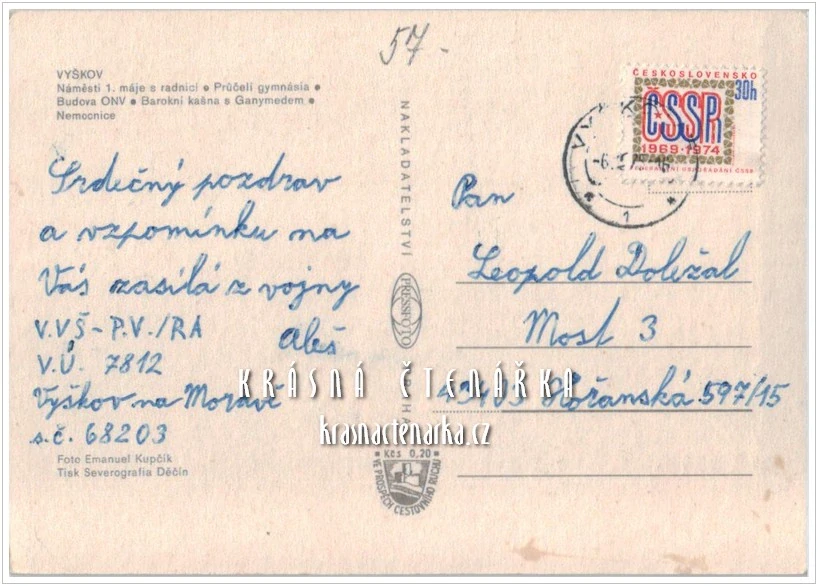 57-
VYŠKOV
Náměstí 1. máje s radnicí ● Průčelí gymnásia ●
Budova ONV ● Barokní kašna s Ganymedem ●
Nemocnice
Srdečný pozdrav
a vzpomínku na
Vás zasílá z vojny
Aleš
V.VŠ-P.V./RA
V.Ú. 7812
Vyškov na Moravě
s.č. 68203
Foto Emanuel Kupčík
Tisk Severografia Děčín
NAKLADATELSTVÍ
PRESSFOTO
Kčs 0,20
VE PROSPĚCH CESTOVNÍHO RUCHU
ČESKOSLOVENSKO
30h
ČSSR
1969-1974
1
Pan
Leopold Doležal
Most 3
43403 Kořanská 597/15
KRÁSNÁ ČTENÁŘKA
krasnactenarka.cz